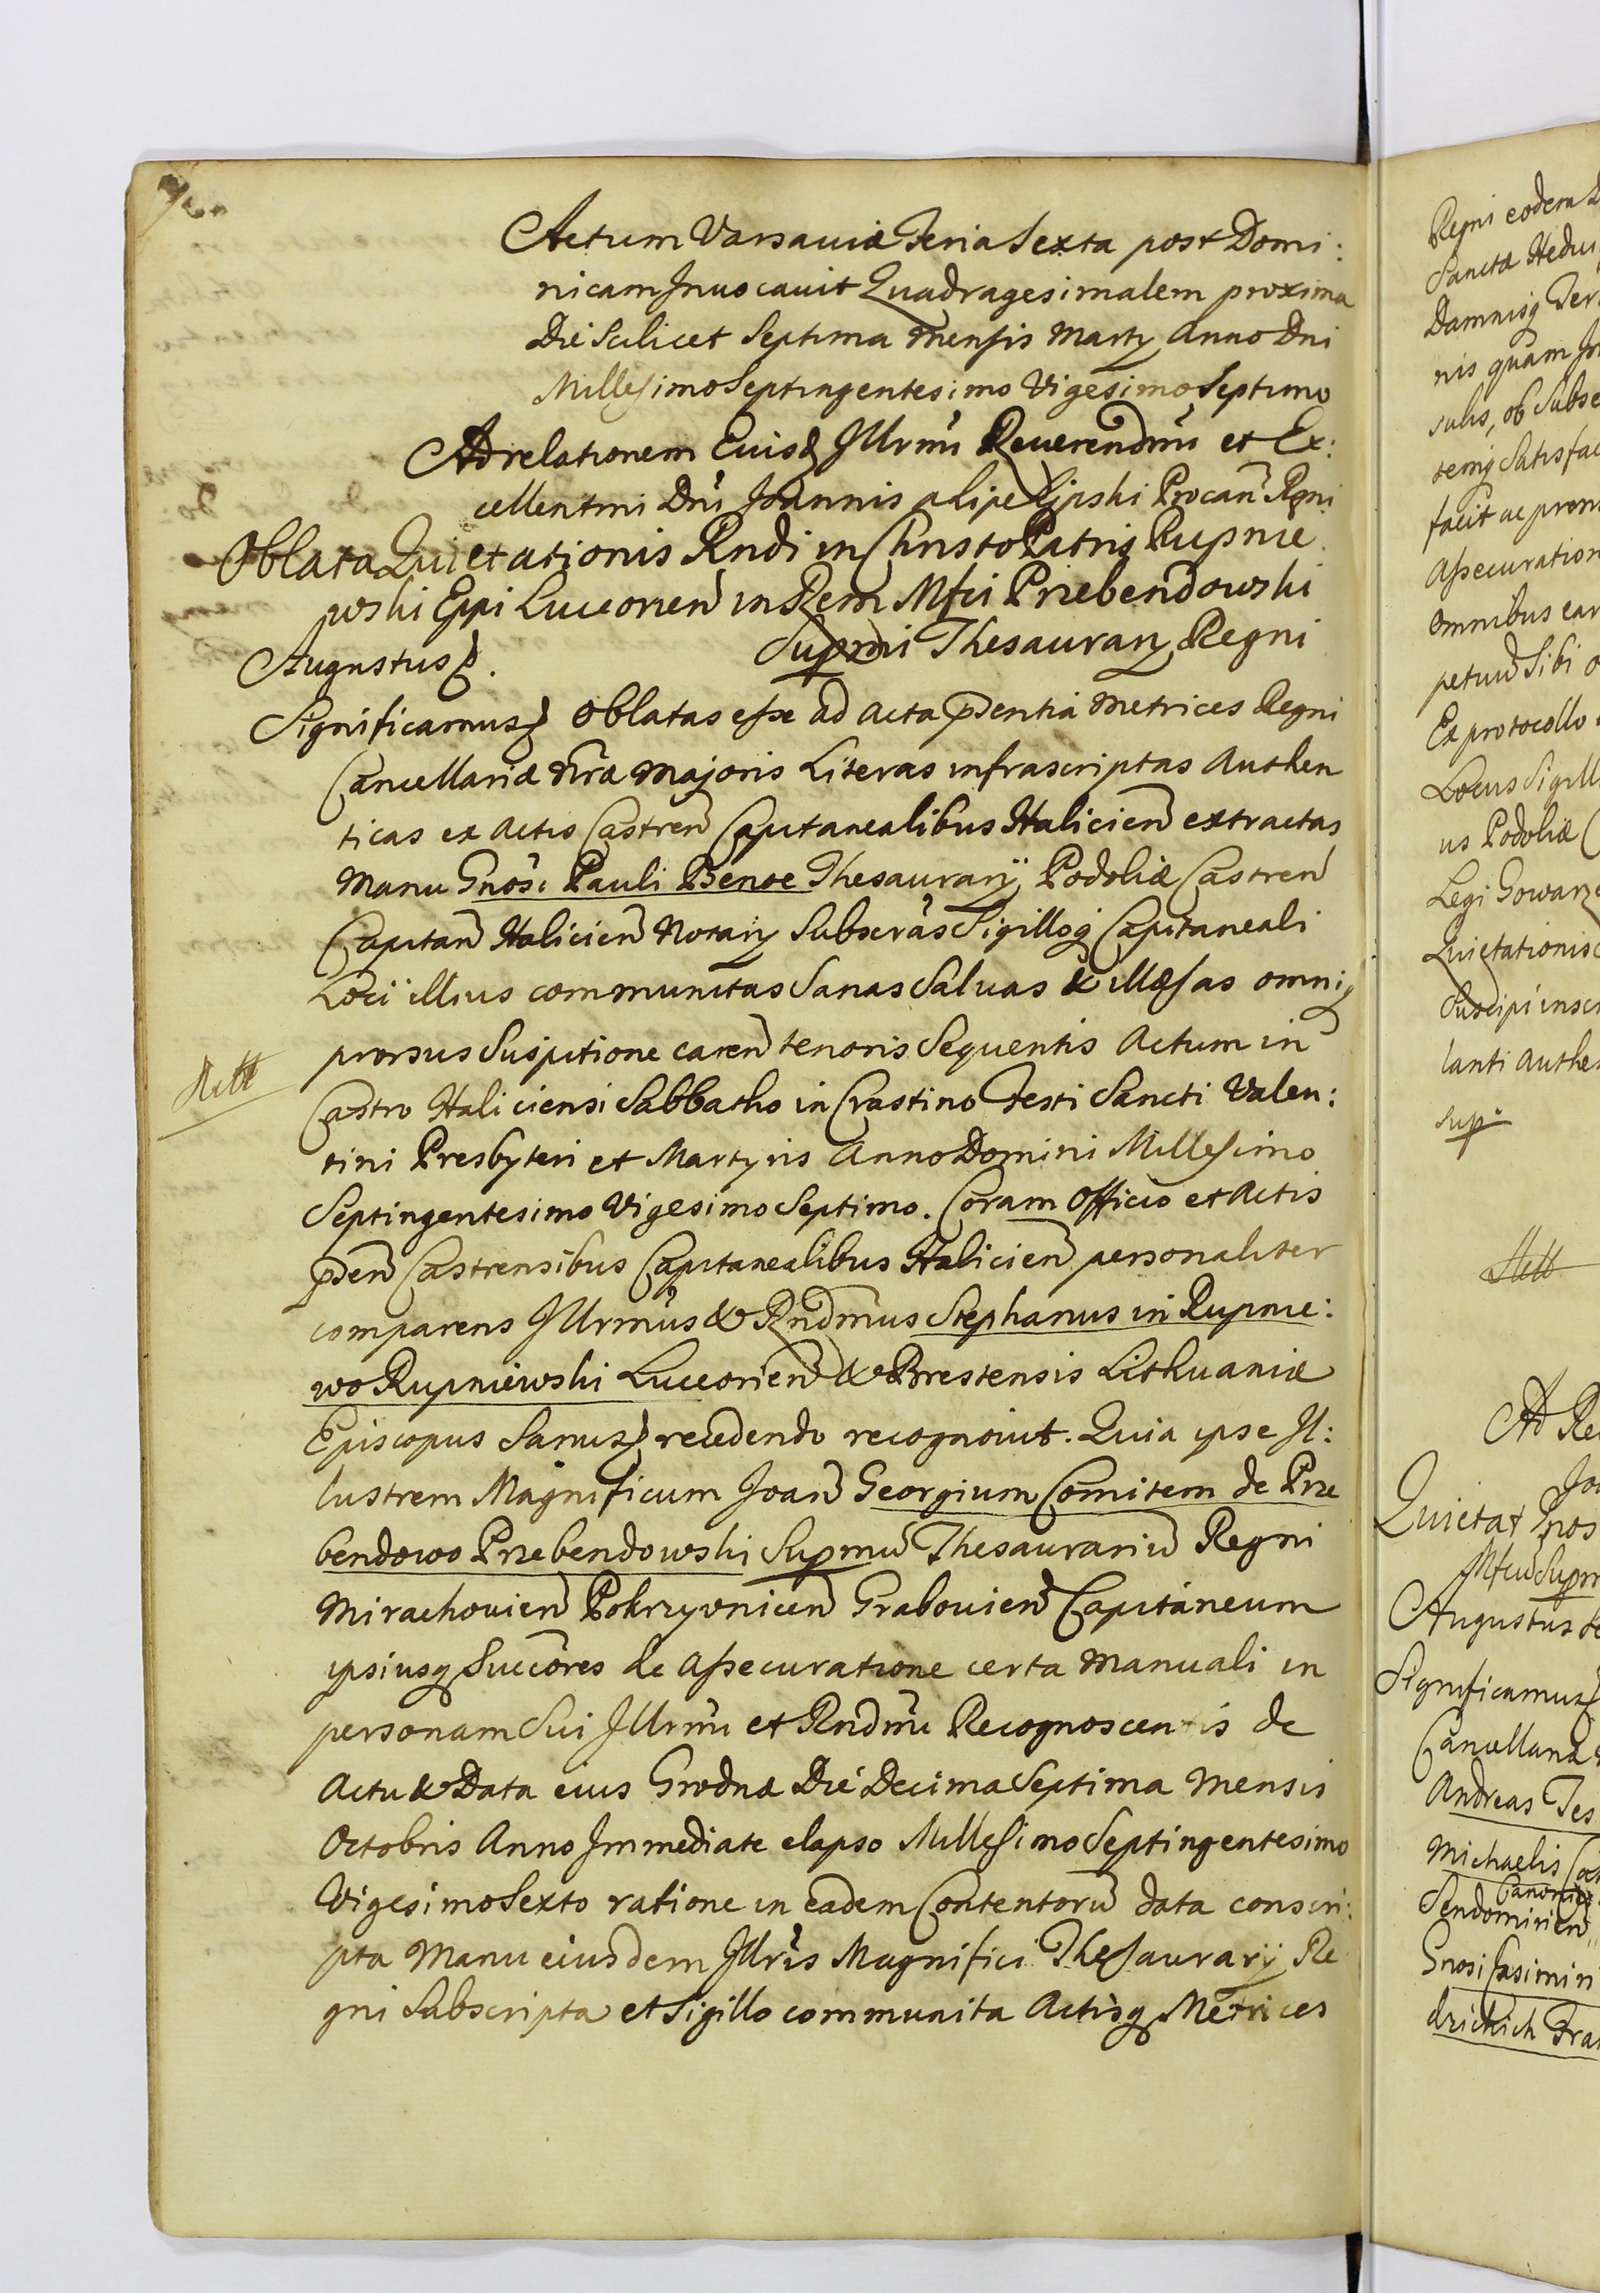 Actum Varsaviæ Feria Sexta post Domi:
nicam Invocavit Quadragesimalem proxima
Die Scilicet Septima Mensis Marty Anno Dni
Millesimo Septingentesimo Vigesimo Septimo
Ad relationem Eiusd Illrmi Reverendmi et Ex:
cellentmi Dni Joannis a Lipe Lipski Procanc Rgni
Oblata Quietationis Rndi in Christo Patris Rupnie
wski Eppi Luceorien in Rem Mfci Przebendowski
Supmi Thesaurary Regni
Augustus
Significamus Oblatas esse ad Acta pntia Metrices Regni
Cancellariæ nræ Majoris Literas infrascriptas Authen
ticas ex Actis Castren Capitanealibus Halicien extractas
Manu Gnosi Pauli Benoe Thesaurarÿ Podoliæ Castren
Capitan Halicien Notary Subscras Sigilloq Capitaneali
Loci illius communitas Sanas Salvas & illæsas omniq
prorsus Suspitione caren tenoris Sequentis Actum in
Castro Haliciensi Sabbatho in Crastino Festi Sancti Valen:
tini Presbyteri et Martyris Anno Domini Millesimo
Septingentesimo Vigesimo Septimo. Coram Officio et Actis
pden Castrensibus Capitanealibus Halicien personaliter
comparens Illrmus & Rndmus Stephanus in Rupnie:
wo Rupniewski Luceorien & Brestensis Lithuaniæ
Episcopus Sanus recedendo recognovit. Quia ipse Il:
lustrem Magnificum Joan Georgium Comitem de Prze
bendowo Przebendowski Supmu Thesaurariu Regni
Mirachovien Pokrzywnicen Grabovien Capitaneum
ipsiusq Succores de Assecuratione certa Manuali in
personam Sui Illrmi et Rndmi Recognoscentis de
Actu & Data eius Grodnæ Die Decima Septima Mensis
Octobris Anno Immediate elapso Millesimo Septingentesimo
Vigesimo Sexto ratione in eadem Contentoru data conscri:
pta Manu eiusdem Illris Magnifici Thesaurarÿ Re
gni Subscripta et Sigillo communita Actisq Metrices
Regni eodem
Sanctæ Hedvi
Damnisq Ter
nis quam
sulis, ob Subse
temq Satisfac
facit ac prom
Assecuration
omnibus ear
petuu Sibi
Ex protocollo
Locus Sigill
us Podoliæ
Legi Gowarze
Quietationis
Suscipi inscr
lanti Authe
Sup
Ad Re
Joa
Quietat Gnos
Mfcu Supm
Augustus
Significamus
Cancellariæ
Andreas Tes
Michaelis
Canonic
Sendomirien
Gnosi Casimiri
drichich Fra